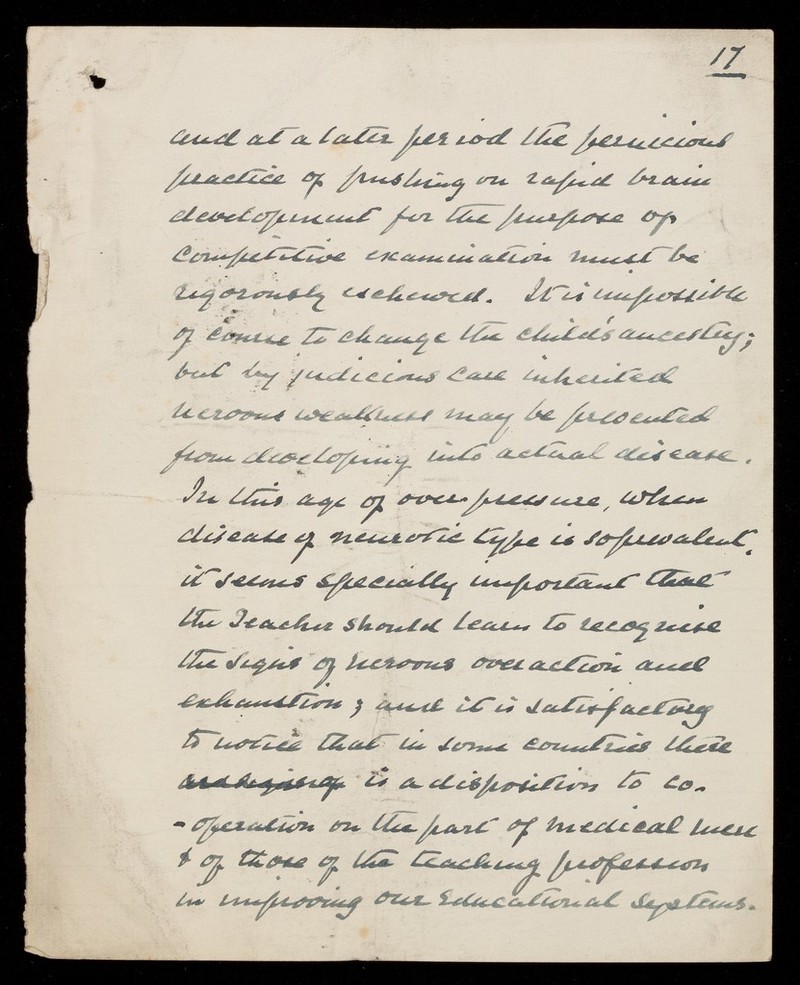 17
and at a later period the pernicious
practice of pushing on rapid brain
development for the purpose of
competitive examination must be
rigorously eschewed. It is impossible
of course to change the child's ancestry;
but by judicious care inherited
nervous weakness may be prevented
from developing into actual disease.
In this age of over-pressure, when
disease of neurotic type is so prevalent,
it seems specially important that
the Teacher should learn to recognise
the signs of nervous overaction and
exhaustion; and it is satisfactory
to notice that in some countries there
is a disposition to co-
-operation on the part of medical men
& of those of the teaching profession
in improving our Educational Systems.